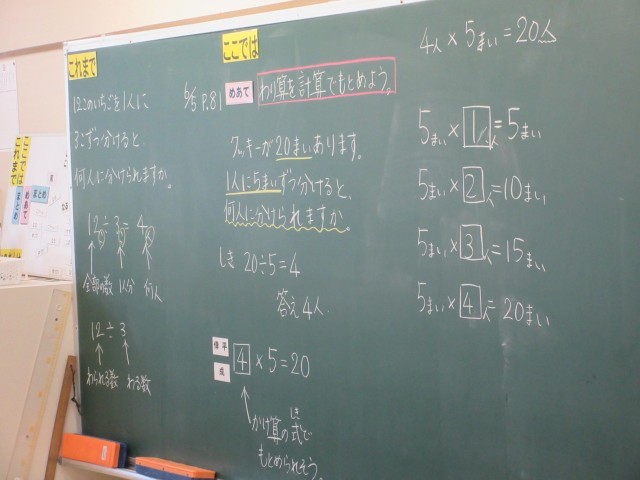 これまで
12このいちごを1人に
3こずつ分けると、
何人に分けられますか。
12÷3=4
全部の数 1人分 何人
12÷3
わられる数 わる数
ここでは
6/5 P.81 めあて わり算を計算でもとめよう。
クッキーが20まいあります。
1人に5まいずつ分けると、
何人に分けられますか。
しき 20÷5=4
答え 4人
4×5=20
かけ算の式で
しき
もとめられそう。
4人×5まい=20
5まい×1人=5まい
5まい×2人=10まい
5まい×3人=15まい
5まい×4人=20まい
ここでは
これまで
めあて
まとめ
まとめ